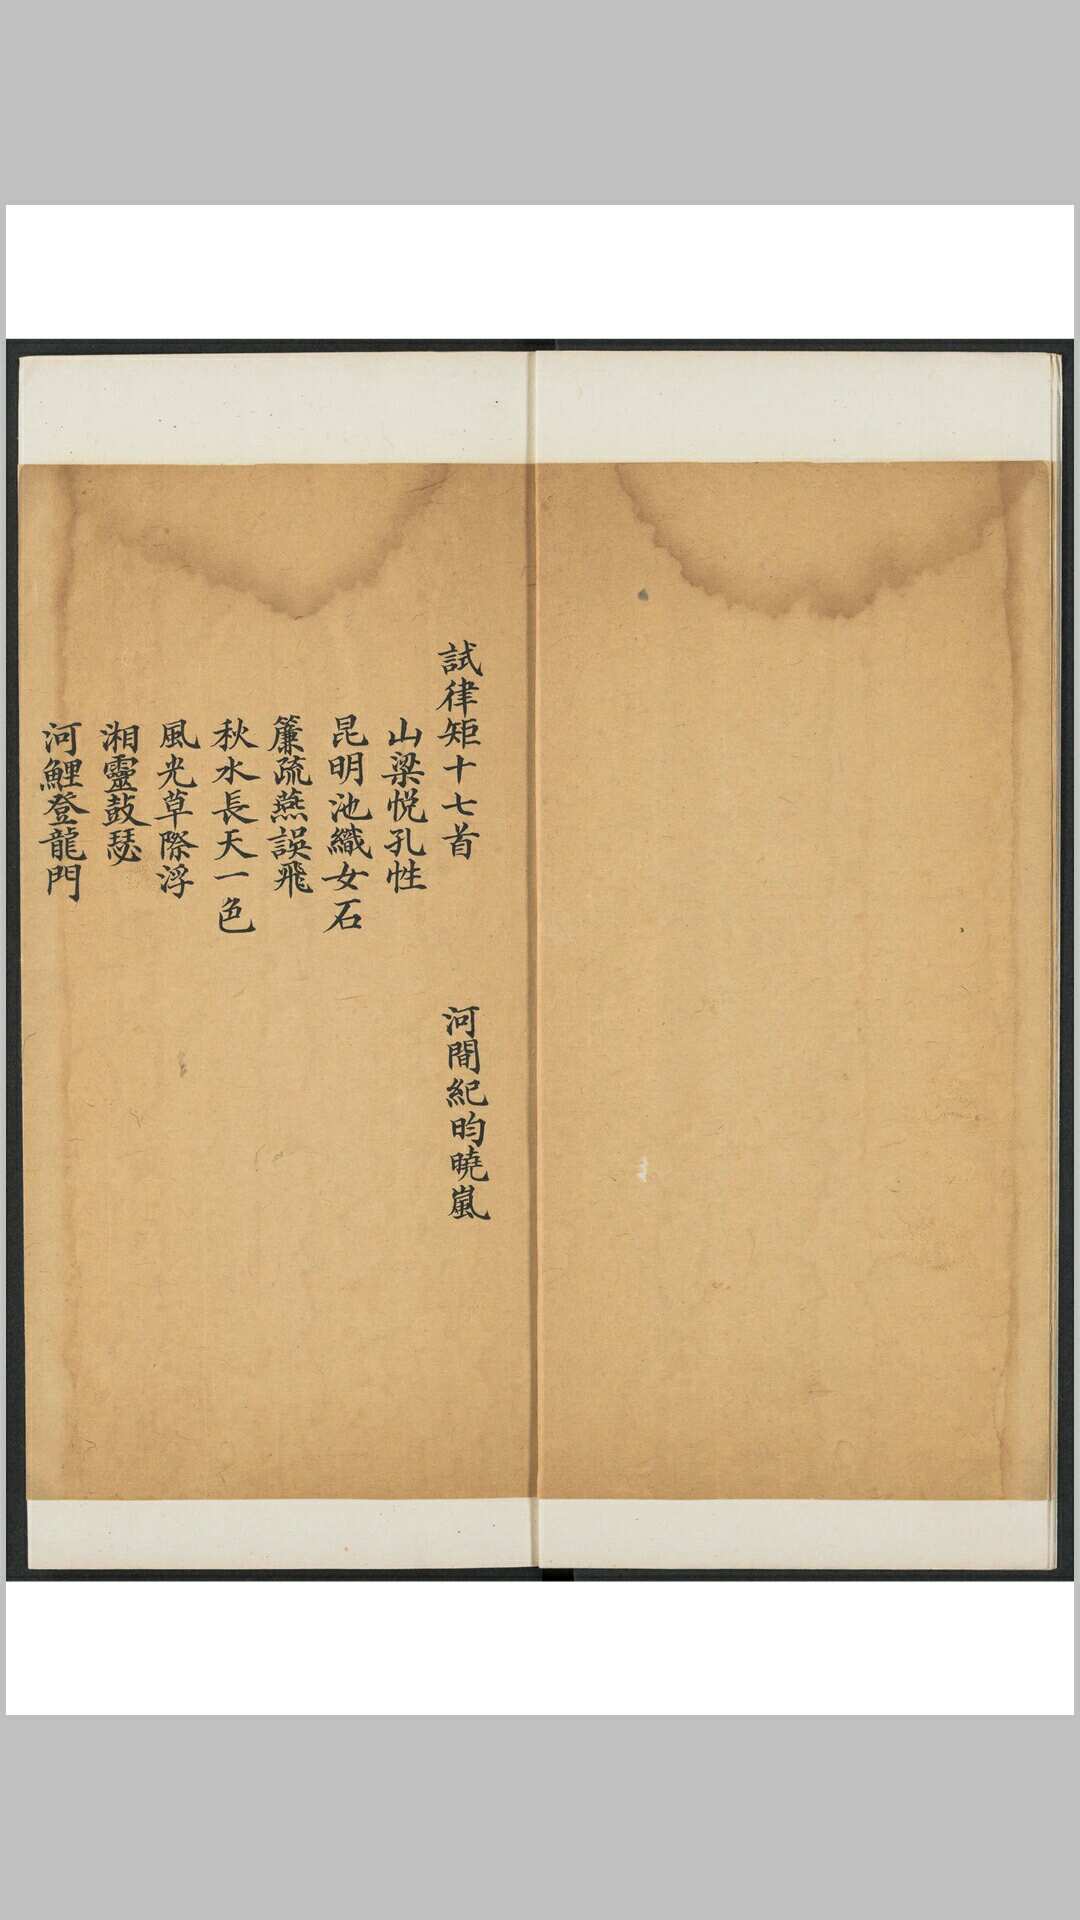 試律矩十七首　河間紀昀曉嵐
山梁悅孔性
昆明池織女石
簾疏燕誤飛
秋水長天一色
風光草際浮
湘靈鼓瑟
河鯉登龍門